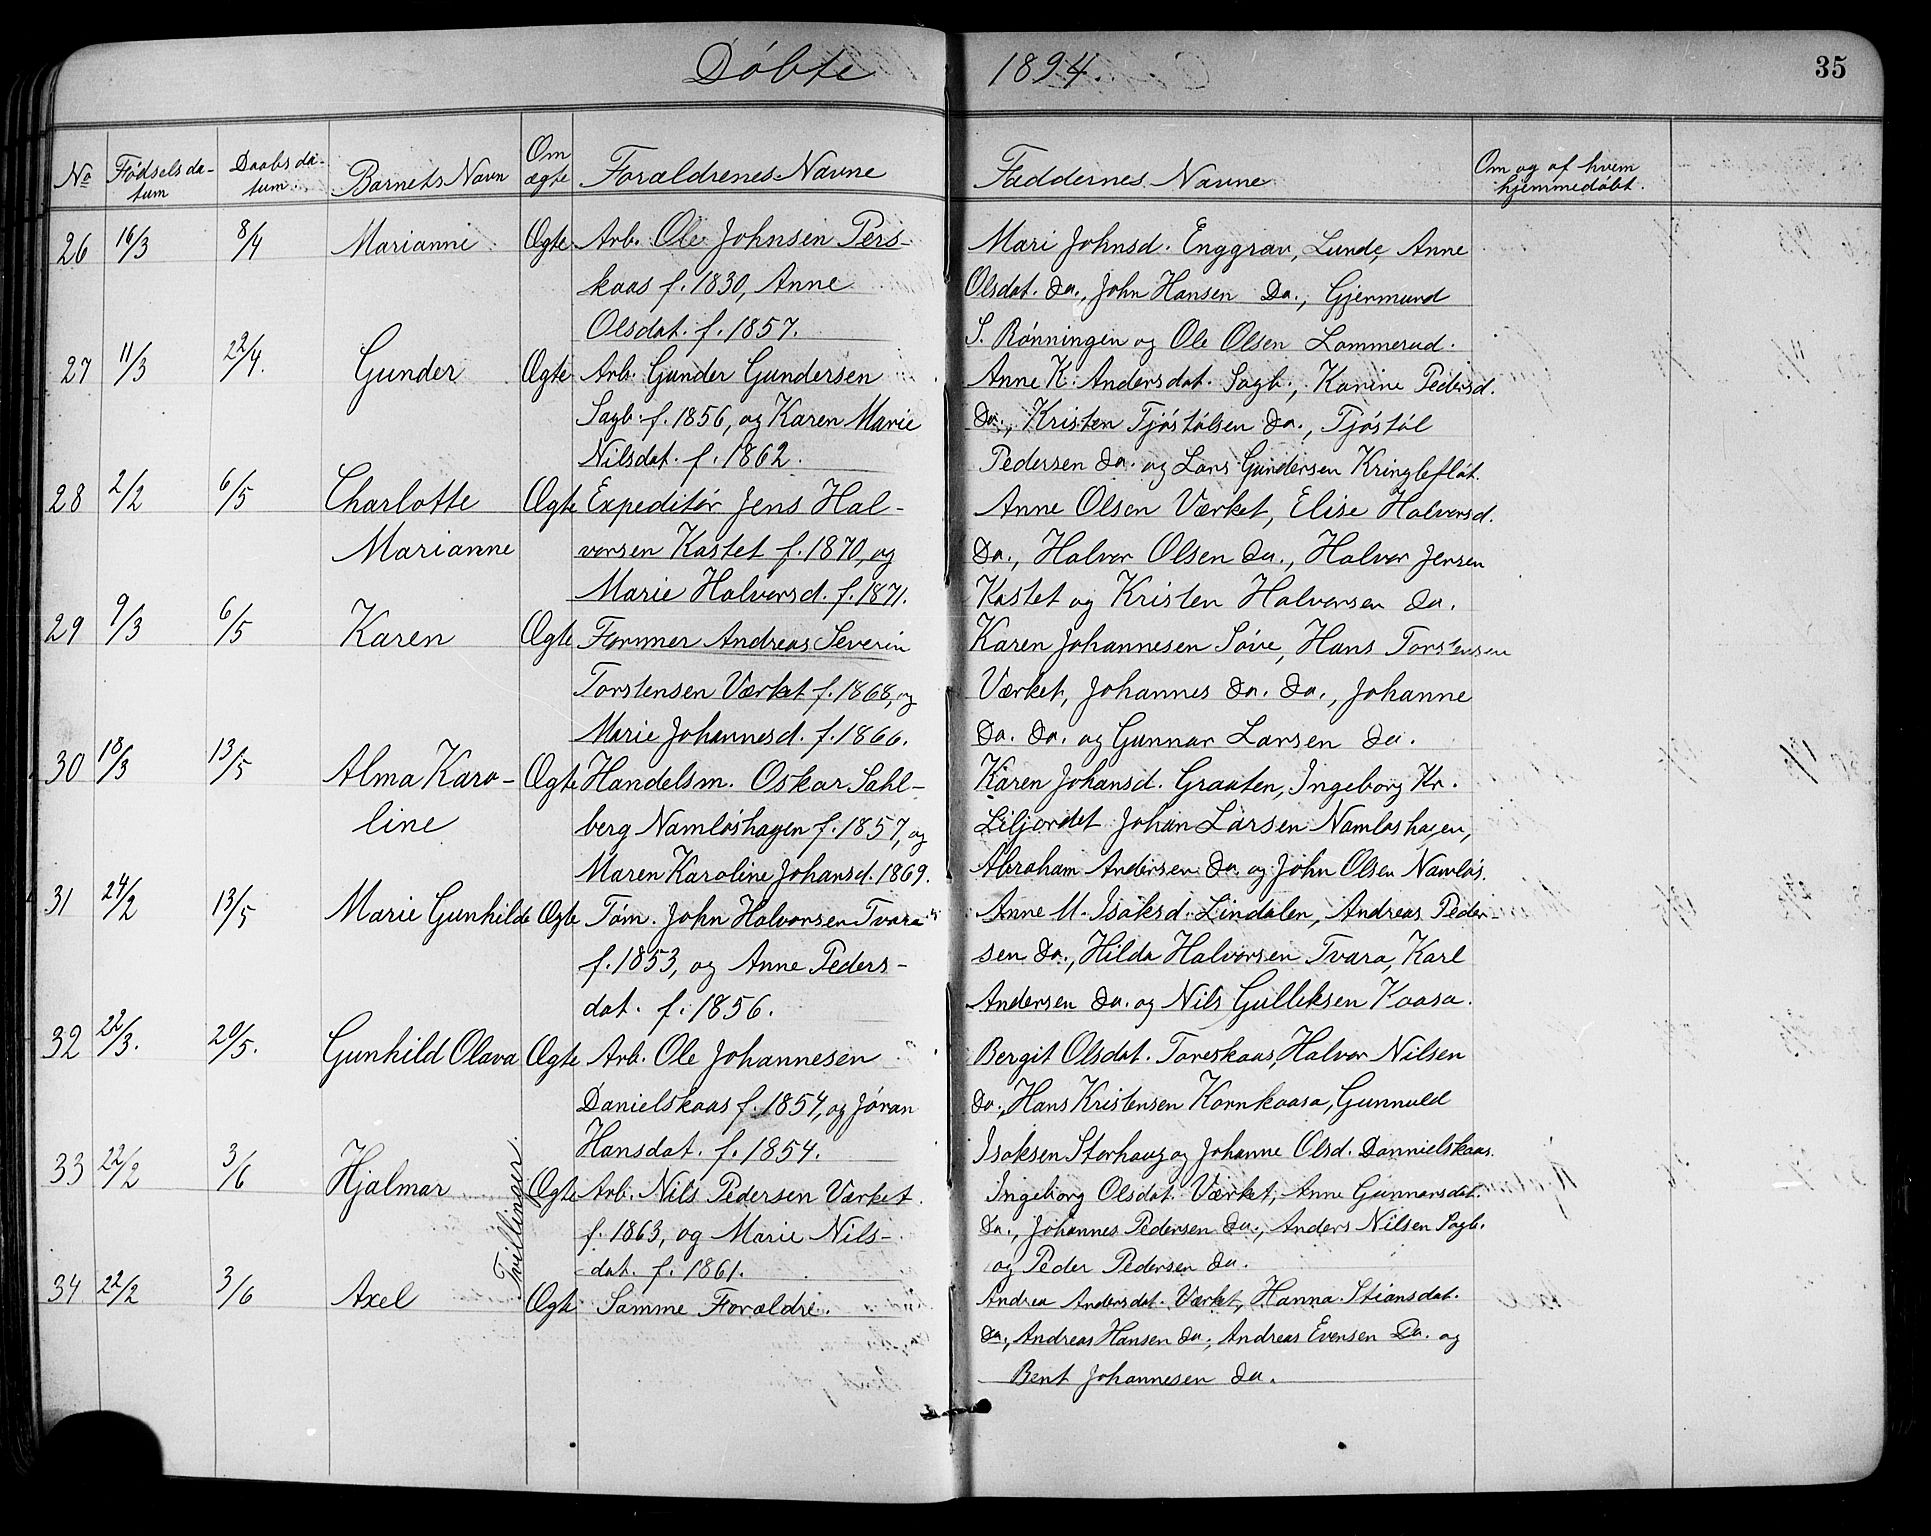 Døbte 1894. 35
No Fødselsda- tum Daabsda- tum. Barnets Navn Om ægte Forældrenes Navne Faddernes Navne Om og af hvem hjemmedøbt.
26 16/3 8/4 Marianne Ægte Arb. Ole Johnsen Pers- Mari Johnsd. Enggrav, Lunde, Anne
kaas f. 1830, Anne Olsdat. do., John Hansen Do., Gjermund
Olsdat. f. 1857. S. Rönningen og Ole Olsen Lommerud.
27 11/3 22/4. Gunder Ægte Arb. Gunder Gundersen Anne K. Andersdat. Sagb., Karine Pedersd.
Sagb. f. 1856, og Karen Marie Do., Kristen Tjöstölsen do., Tjöstöl
Nilsdat. f. 1862. Pedersen do. og Lars Gundersen Kringleflöt.
28 2/2 6/5 Charlotte Ægte Expeditör Jens Hal- Anne Olsen Værket, Elise Halvorsd.
Marianne vorsen Kastet f. 1870, og Do., Halvor Olsen do., Halvor Jensen
Marie Halvorsd. f. 1871. Kastet og Kristen Halvorsen do.
29 9/3 6/5 Karen Ægte Former Andreas Severin Karen Johannesen Söve, Hans Torstensen
Torstensen Værket f. 1868, og Værket, Johannes do. do., Johanne
Marie Johannesd. f. 1866. Do. do. og Gunnar Larsen do.
30 18/3 13/5 Alma Karo- Ægte Handelsm. Oskar Sahl- Karen Johansd. Graaten, Ingeborg Kr.
line berg Namløshagen f. 1857, og Liljordet Johan Larsen Namløshagen,
Maren Karoline Johansd. 1869. Abraham Andersen do. og John Olsen Namløs.
31 24/2 13/5 Marie Gunhilde Ægte Töm. John Halvorsen Tvara Anne M. Isaksd. Lindalen, Andreas Peder
f. 1853, og Anne Peders- sen do., Hilda Halvorsen Tvara, Karl
dat. f. 1856. Andersen do. og Nils Gulliksen Kaasa.
32 22/3. 20/5. Gunhild Olava Ægte Arb. Ole Johannesen Bergit Olsdat. Toreskaas, Halvor Nilsen
Danielskaas f. 1854, og Jöran do., Hans Kristensen Kornkaasa, Gunnuld
Hansdat. f. 1854. Isaksen Storhaug og Johanne Olsd. Dannielskaas.
33 22/2 3/6 Hjalmar Tvillinger. Ægte Arb. Nils Pedersen Værket Ingeborg Olsdat. Værket, Anne Gunnarsdat.
f. 1863, og Marie Nils- do., Johannes Pedersen do., Anders Nilsen Sagb.
dat. f. 1861. og Peder Pedersen do.
34 22/2 3/6 Axel Ægte Samme Forældre. Andrea Andersdat. Værket, Hanna Stiansdat.
do., Andreas Hansen do., Andreas Evensen Do. og
Bent Johannesen do.